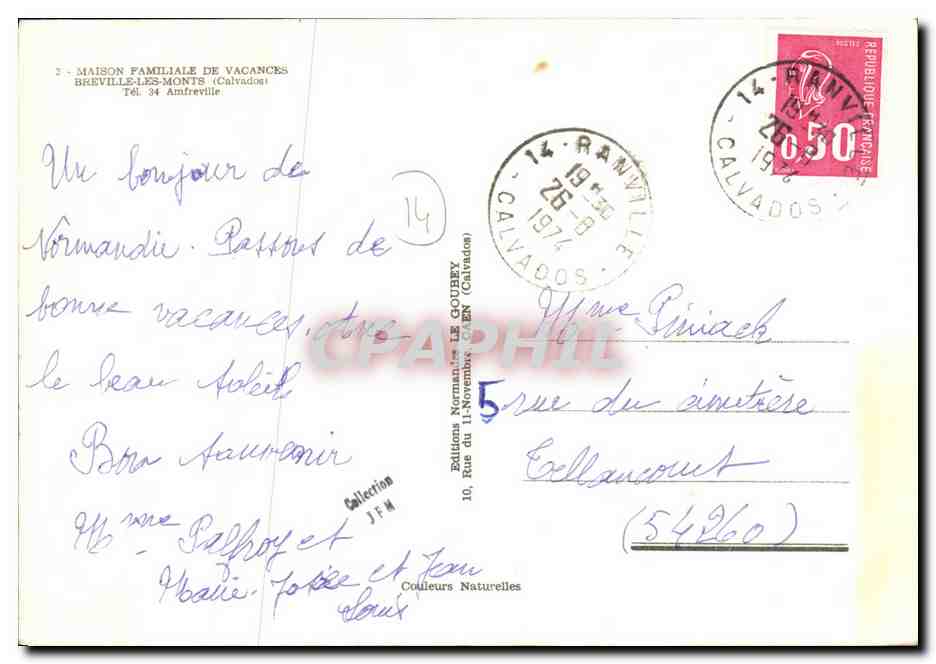 2 - MAISON FAMILIALE DE VACANCES
BREVILLE-LES-MONTS (Calvados)
Tél. 34 Amfreville
Un bonjour de
Normandie. Passons de
bonne vacances. Avec
le beau soleil
Bon souvenir
Mme Palfroy et
Marie-Josée et Jean
Louis
14
Collection
J F M
Couleurs Naturelles
Editions Normandes LE GOUBEY
10, Rue du 11-Novembre, CAEN (Calvados)
14 - RANVILLE
19 H 30
26-8
1974
- CALVADOS -
14 - RANVILLE
19 H 30
26-8
1974
- CALVADOS -
POSTES
RÉPUBLIQUE FRANÇAISE
0,50
CPAPHIL
Mme Piniack
5 rue du cimetière
Tellancourt
(54260)